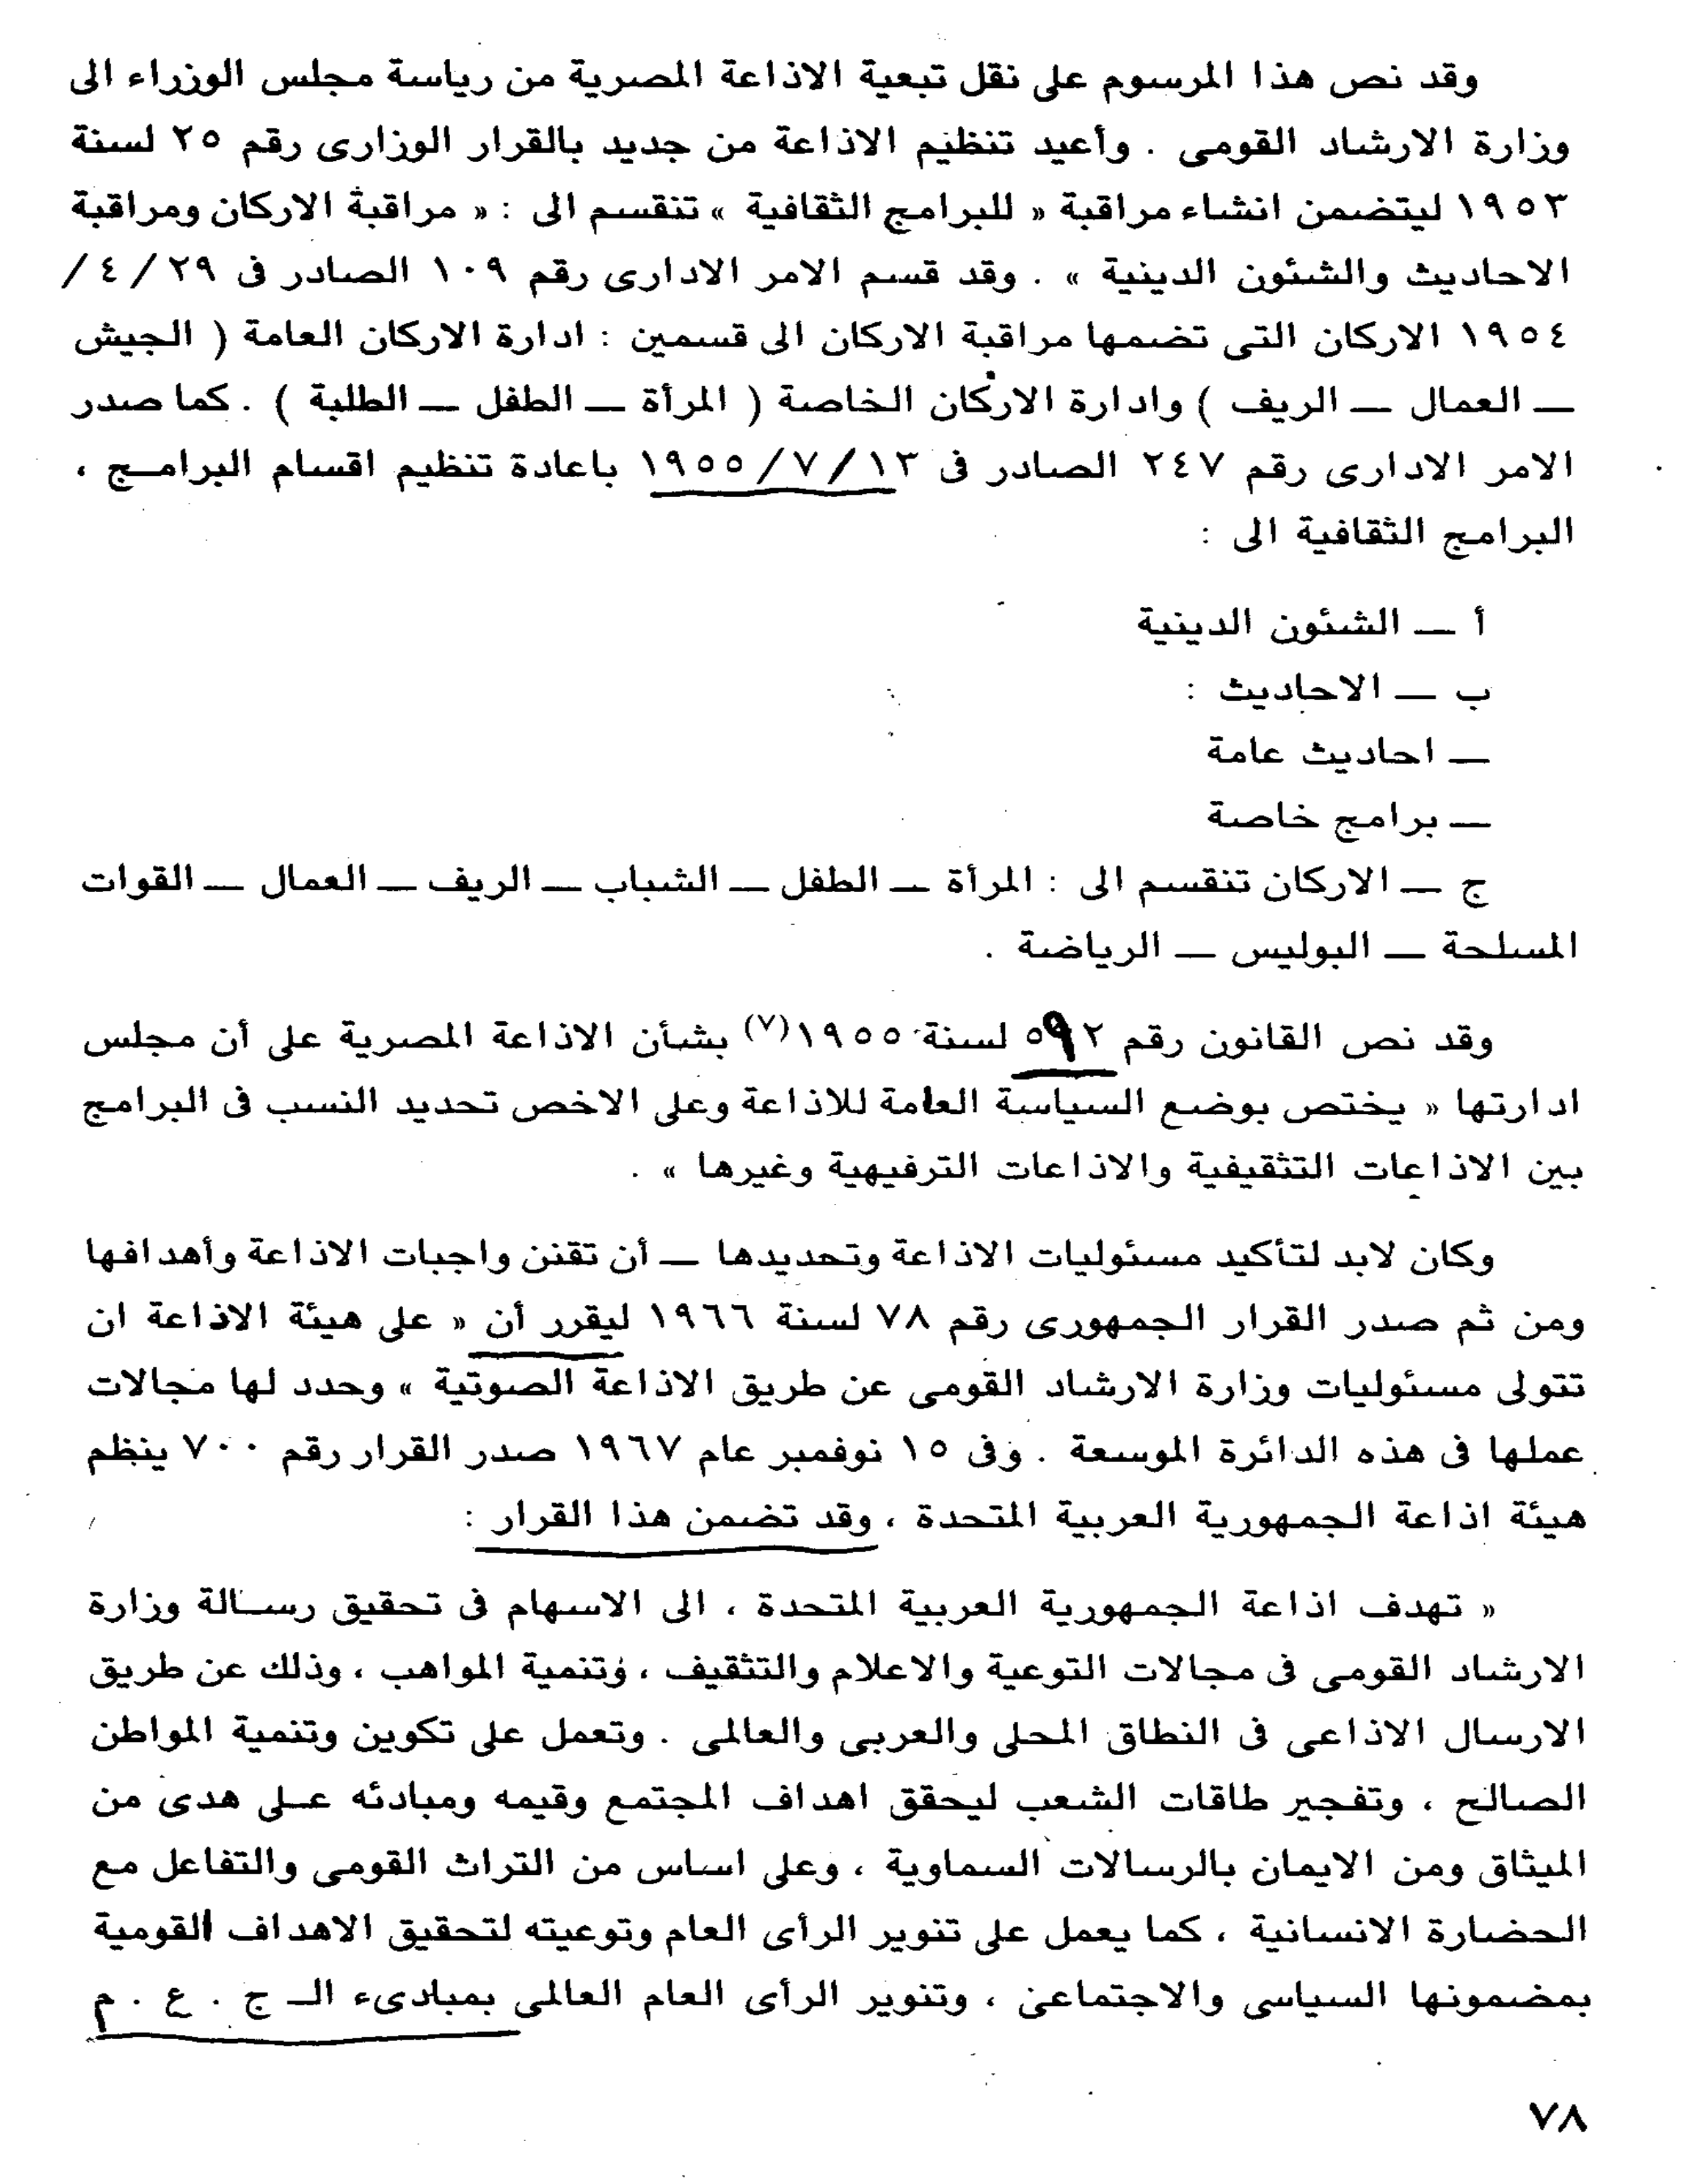 وقد نص هذا المرسوم على نقل تبعية الاذاعة المصرية من رياسة مجلس الوزراء الى
وزارة الارشاد القومى . وأعيد تنظيم الاذاعة من جديد بالقرار الوزارى رقم ٢٥ لسنة
١٩٥٣ ليتضمن انشاء مراقبة « للبرامج الثقافية » تنقسم الى : « مراقبة الاركان ومراقبة
الاحاديث والشئون الدينية » . وقد قسم الامر الادارى رقم ١٠٩ الصادر فى ٢٩/٤/
١٩٥٤ الاركان التى تضمها مراقبة الاركان الى قسمين : ادارة الاركان العامة ( الجيش
— العمال — الريف ) وادارة الاركان الخاصة ( المرأة — الطفل — الطلبة ) . كما صدر
الامر الادارى رقم ٢٤٧ الصادر فى ١٣/٧/١٩٥٥ باعادة تنظيم اقسام البرامـج ،
البرامج الثقافية الى :
أ — الشئون الدينية
ب — الاحاديث :
— احاديث عامة
— برامج خاصة
ج — الاركان تنقسم الى : المرأة — الطفل — الشباب — الريف — العمال — القوات
المسلحة — البوليس — الرياضة .
وقد نص القانون رقم ٥٩٢ لسنة ١٩٥٥(٧) بشأن الاذاعة المصرية على أن مجلس
ادارتها « يختص بوضع السياسة العامة للاذاعة وعلى الاخص تحديد النسب فى البرامج
بين الاذاعات التثقيفية والاذاعات الترفيهية وغيرها » .
وكان لابد لتأكيد مسئوليات الاذاعة وتحديدها — أن تقنن واجبات الاذاعة وأهدافها
ومن ثم صدر القرار الجمهورى رقم ٧٨ لسنة ١٩٦٦ ليقرر أن « على هيئة الاذاعة ان
تتولى مسئوليات وزارة الارشاد القومى عن طريق الاذاعة الصوتية » وحدد لها مجالات
عملها فى هذه الدائرة الموسعة . وفى ١٥ نوفمبر عام ١٩٦٧ صدر القرار رقم ٧٠٠ ينظم
هيئة اذاعة الجمهورية العربية المتحدة ، وقد تضمن هذا القرار :
« تهدف اذاعة الجمهورية العربية المتحدة ، الى الاسهام فى تحقيق رسـالة وزارة
الارشاد القومى فى مجالات التوعية والاعلام والتثقيف ، وتنمية المواهب ، وذلك عن طريق
الارسال الاذاعى فى النطاق المحلى والعربى والعالمى . وتعمل على تكوين وتنمية المواطن
الصالح ، وتفجير طاقات الشعب ليحقق اهداف المجتمع وقيمه ومبادئه عـلى هدى من
الميثاق ومن الايمان بالرسالات السماوية ، وعلى اساس من التراث القومى والتفاعل مع
الحضارة الانسانية ، كما يعمل على تنوير الرأى العام وتوعيته لتحقيق الاهداف القومية
بمضمونها السياسى والاجتماعى ، وتنوير الرأى العام العالمى بمبادىء الـ ج . ع . م
٧٨